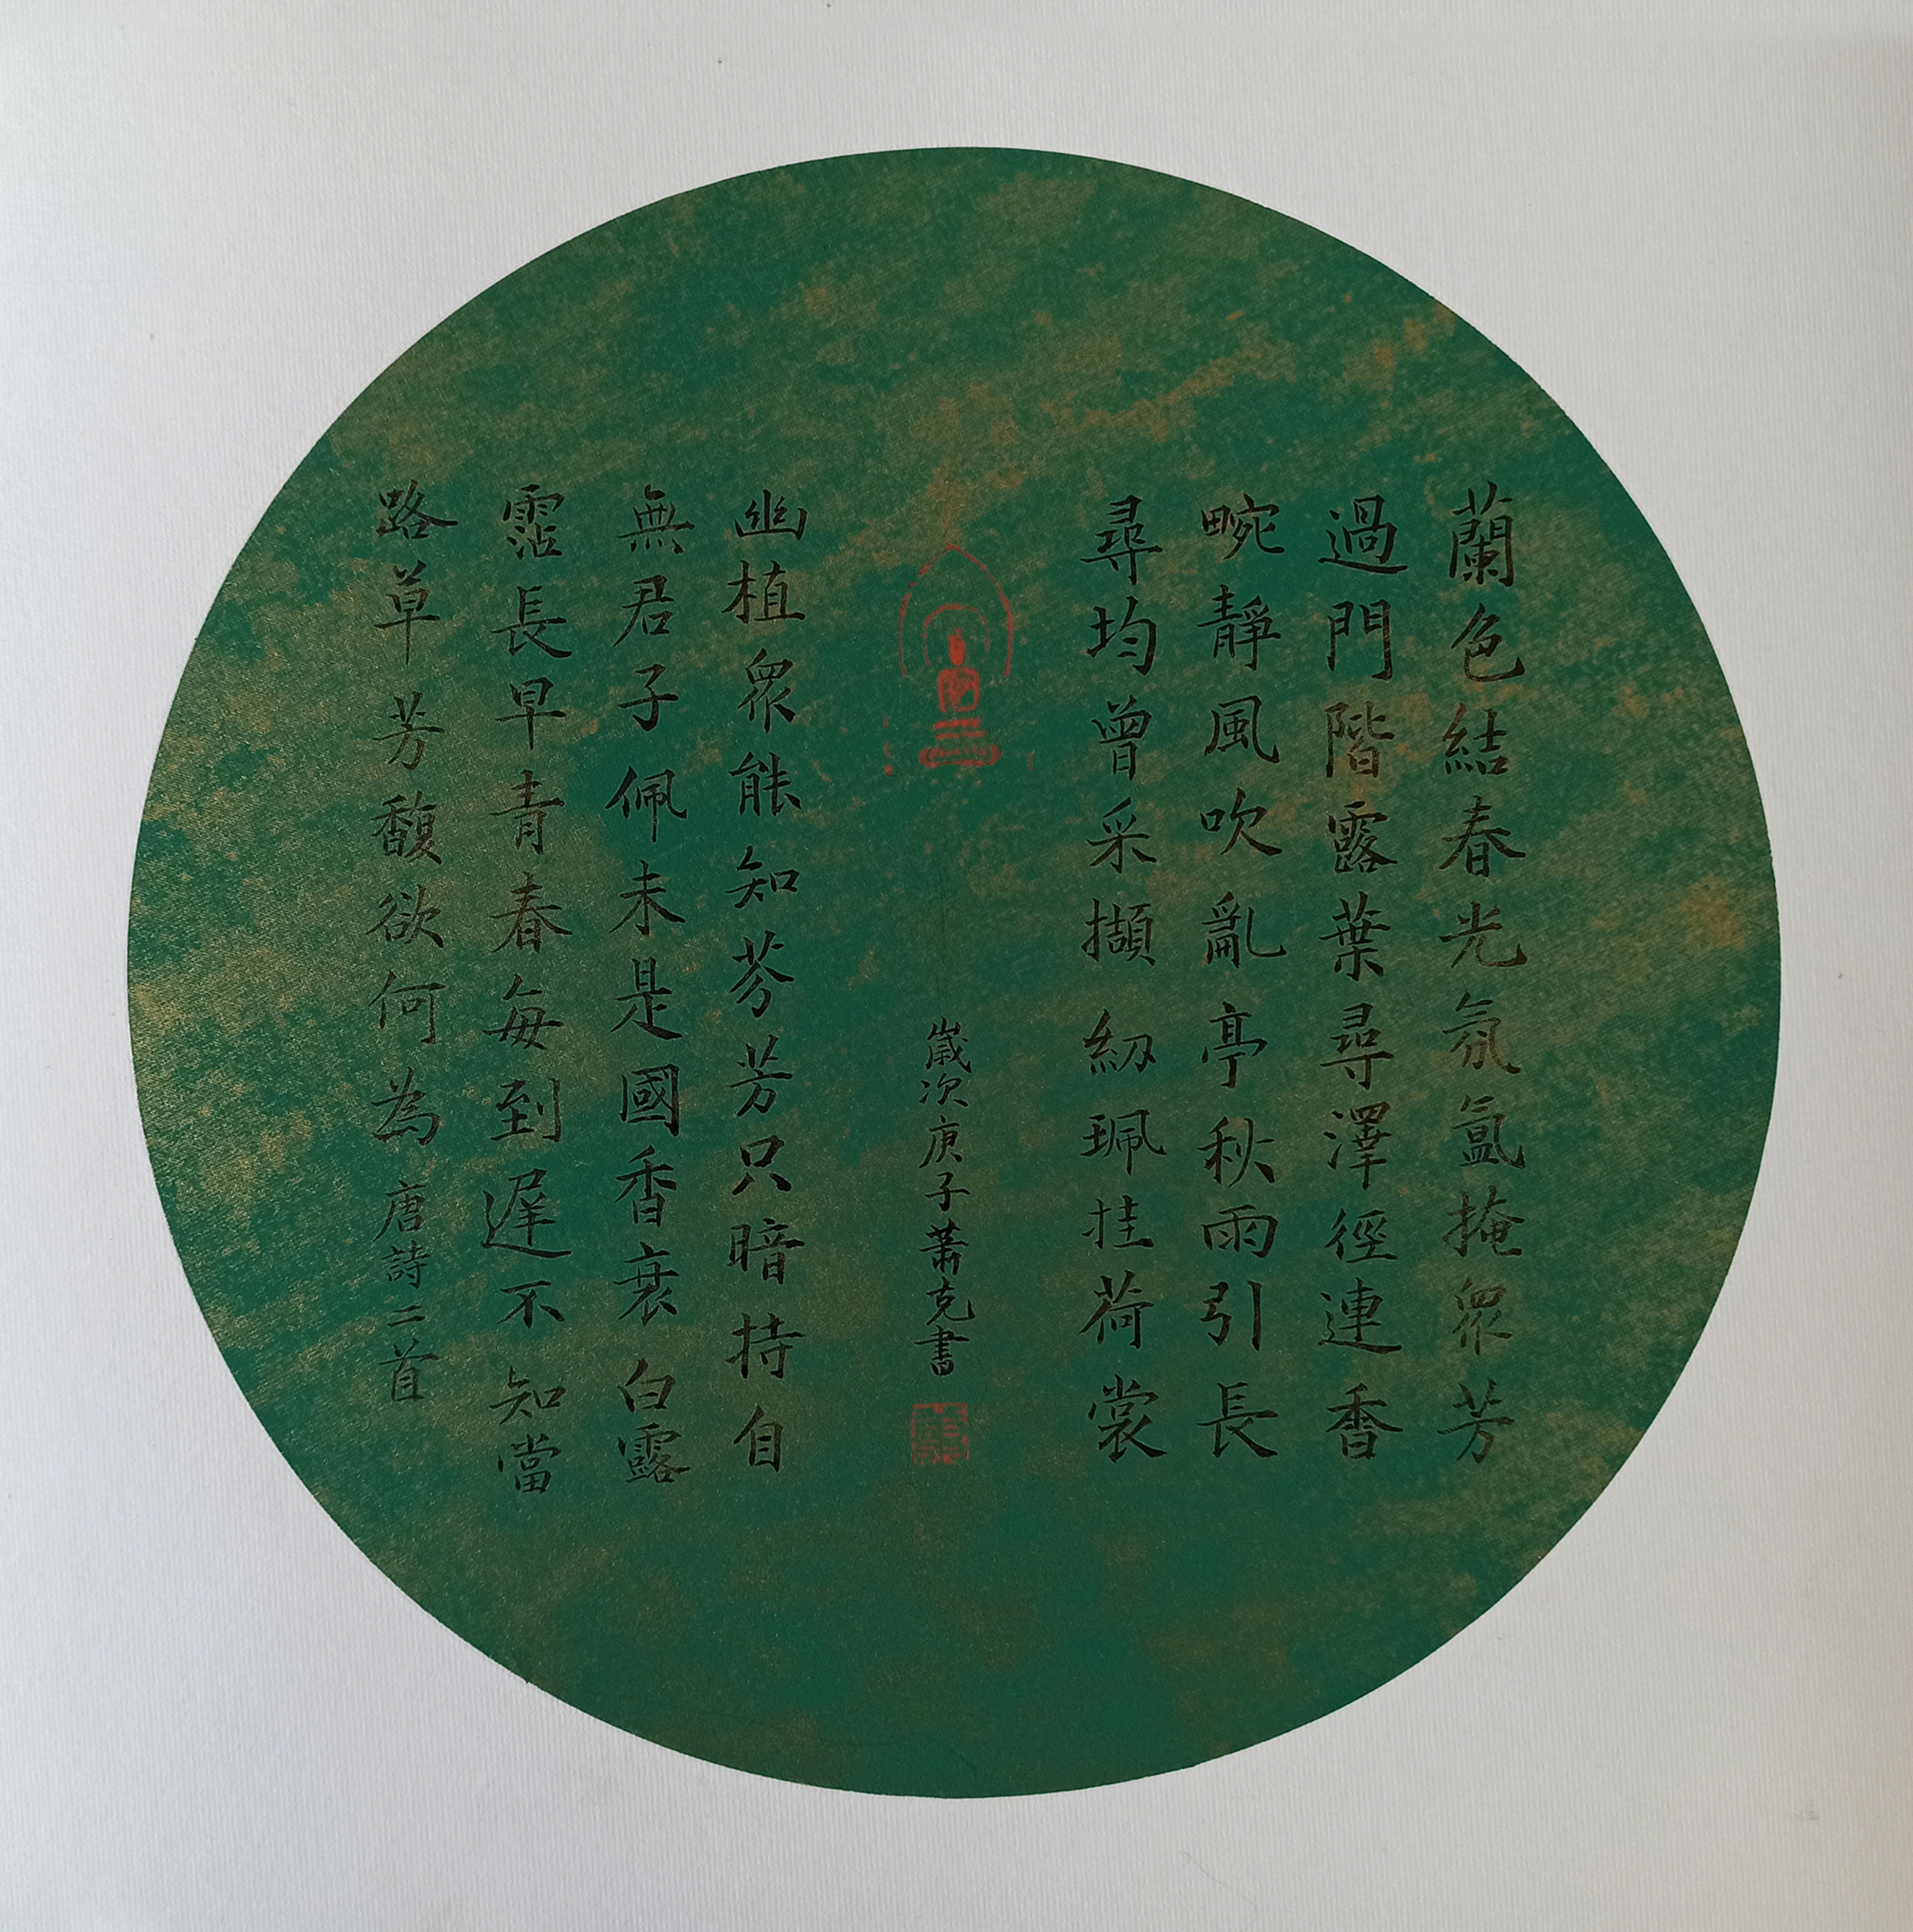 蘭色結春光氛氳掩衆芳
過門階露葉尋澤徑連香
畹靜風吹亂亭秋雨引長
尋均曾采擷紉珮挂荷裳
歲次庚子蕭克書
幽植衆能知芬芳只暗持自
無君子佩未是國香衰白露
霑長早青春每到遲不知當
路草芳馥欲何為唐詩二首